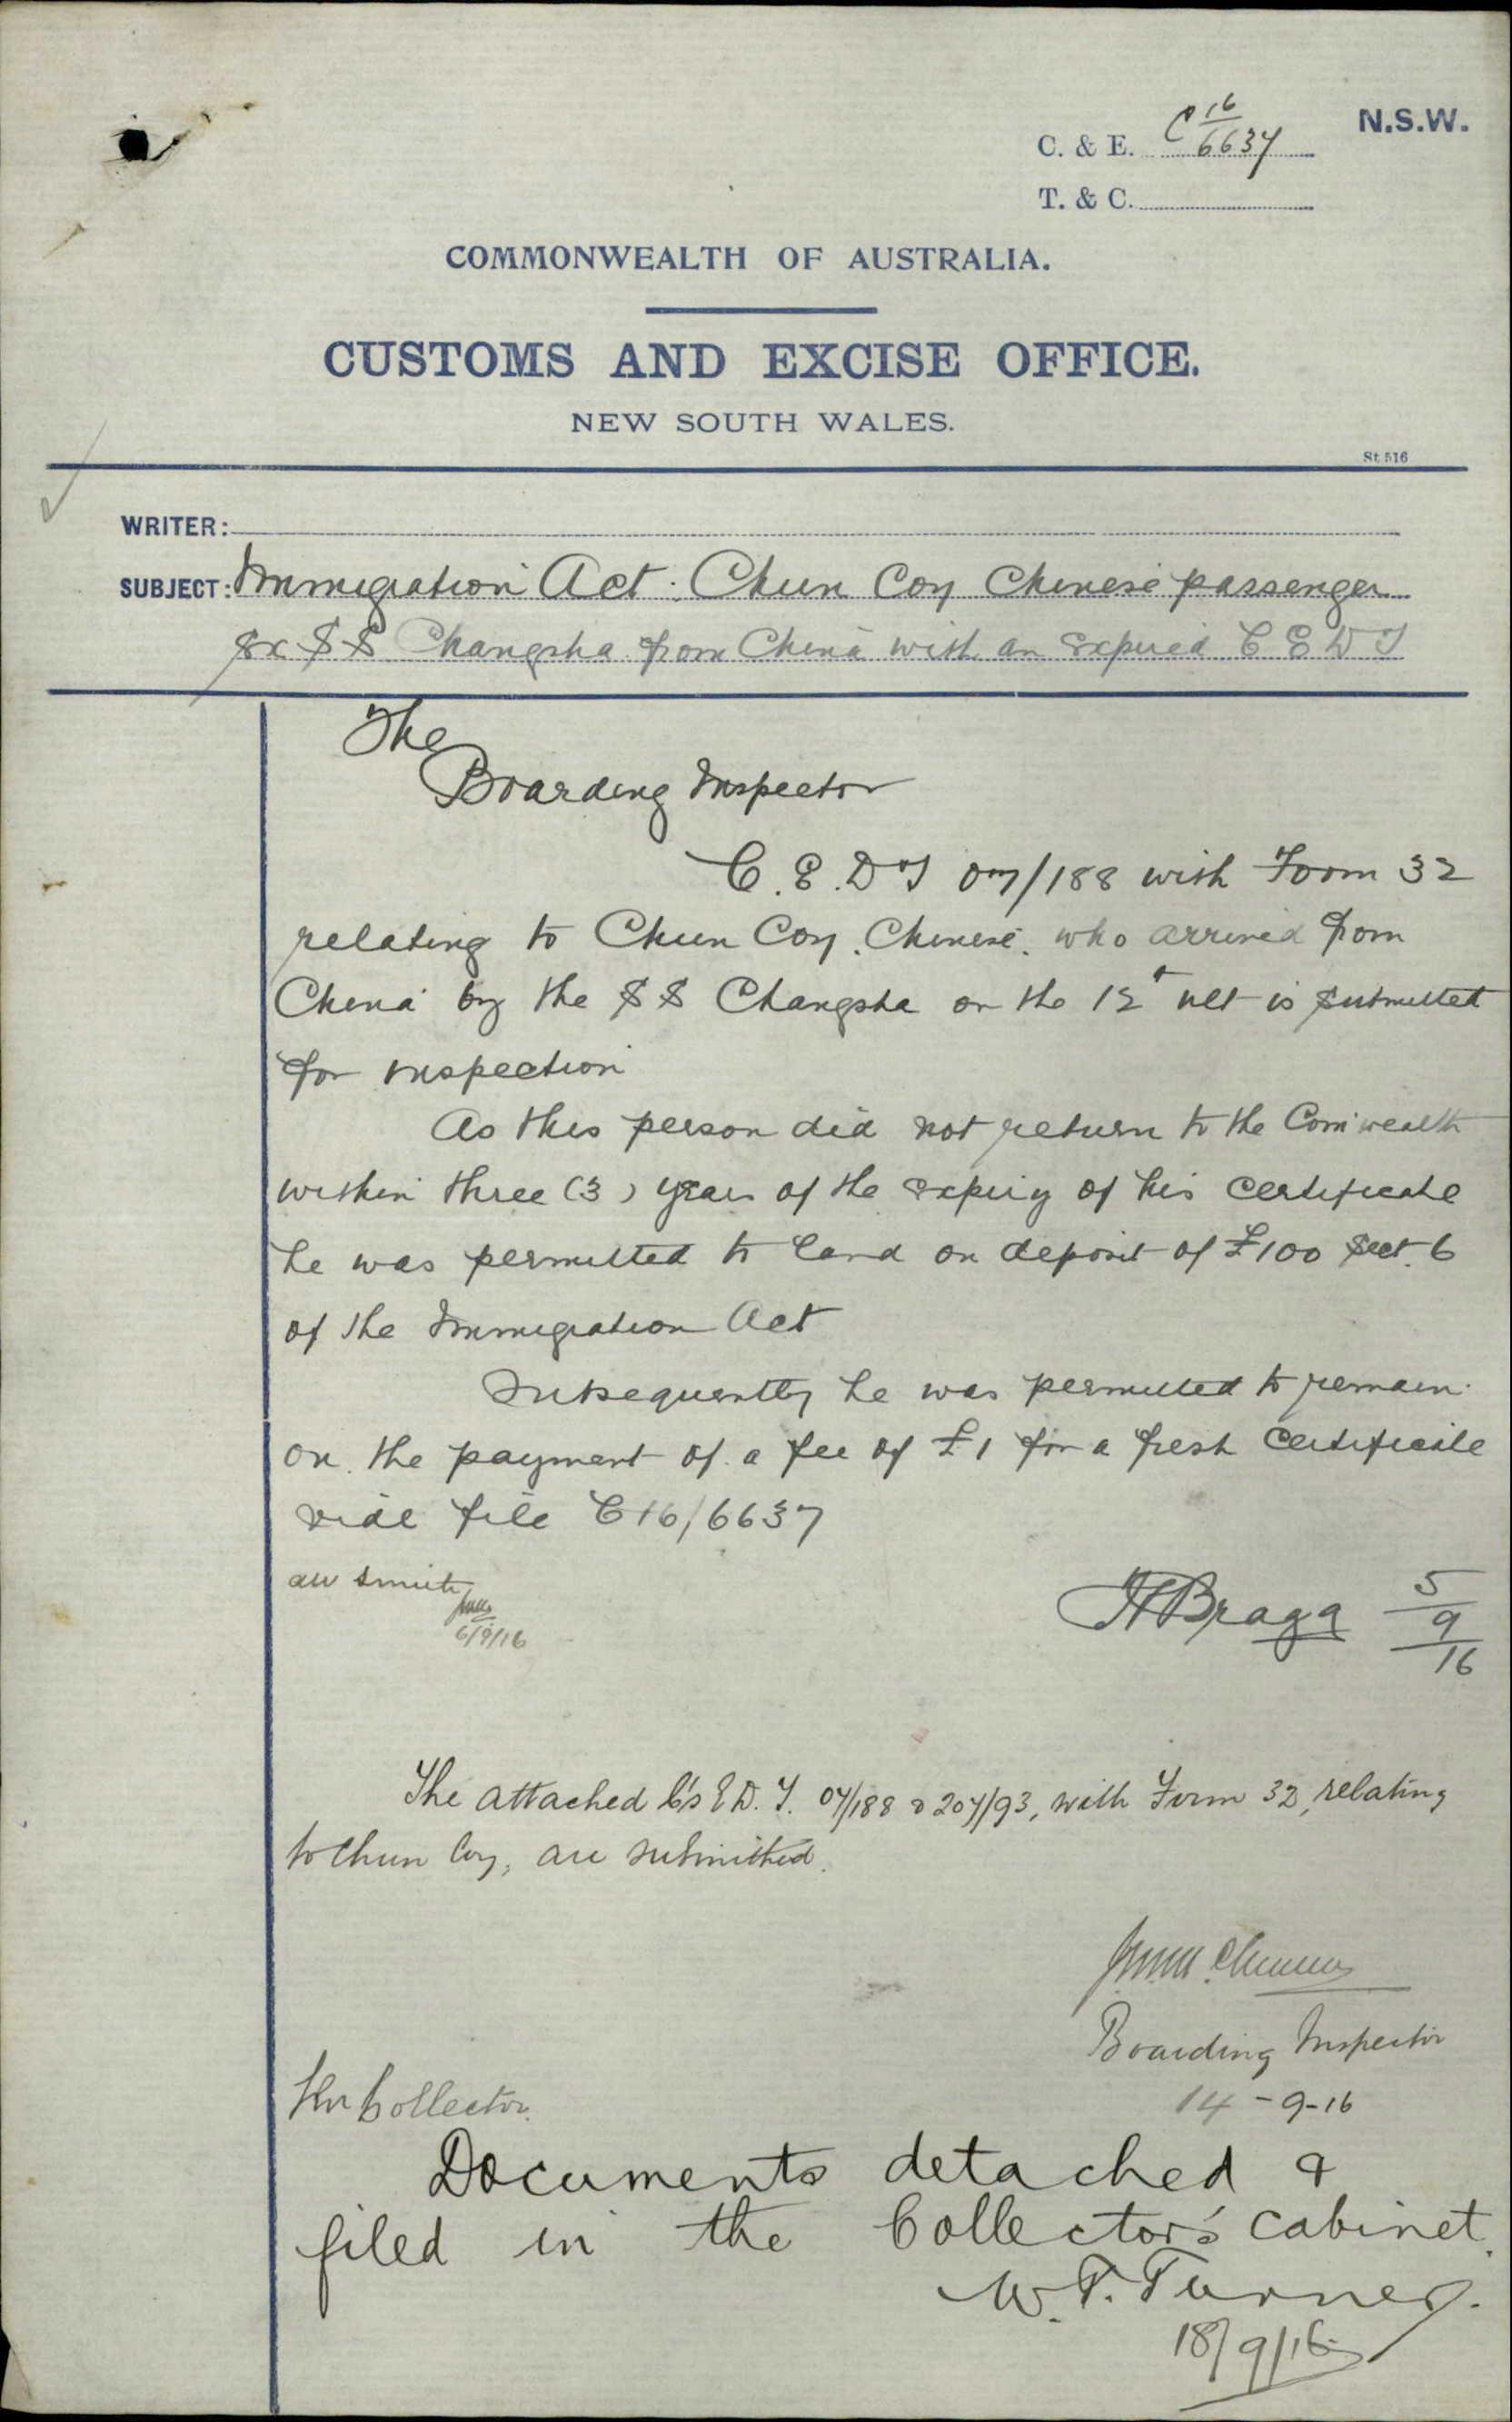 C. & E. C 16/6637
N.S.W.
T. & C.
COMMONWEALTH OF AUSTRALIA.
CUSTOMS AND EXCISE OFFICE.
NEW SOUTH WALES.
St. 516
WRITER:
SUBJECT: Immigration Act: Chun Coy Chinese passenger
ex SS Changsha from China with an expired C E D T
The
Boarding Inspector
C.E.D T 07/188 with Form 32
relating to Chun Coy, Chinese, who arrived from
China by the SS Changsha on the 12th ult is submitted
for inspection
As this person did not return to the Com'wealth
within three (3) years of the expiry of his certificate
he was permitted to land on deposit of £100 Sect. 6
of the Immigration Act
Subsequently he was permitted to remain
on the payment of a fee of £1 for a fresh certificate
vide file C16/6637
Mr Smith
6/9/16
Braga 5/9/16
The attached C's E.D.T. 07/188 & 207/93, with Form 32, relating
to Chun Coy, are submitted.
Boarding Inspector
14-9-16
The Collector.
Documents detached &
filed in the Collector's cabinet.
W.T. Turner.
18/9/16